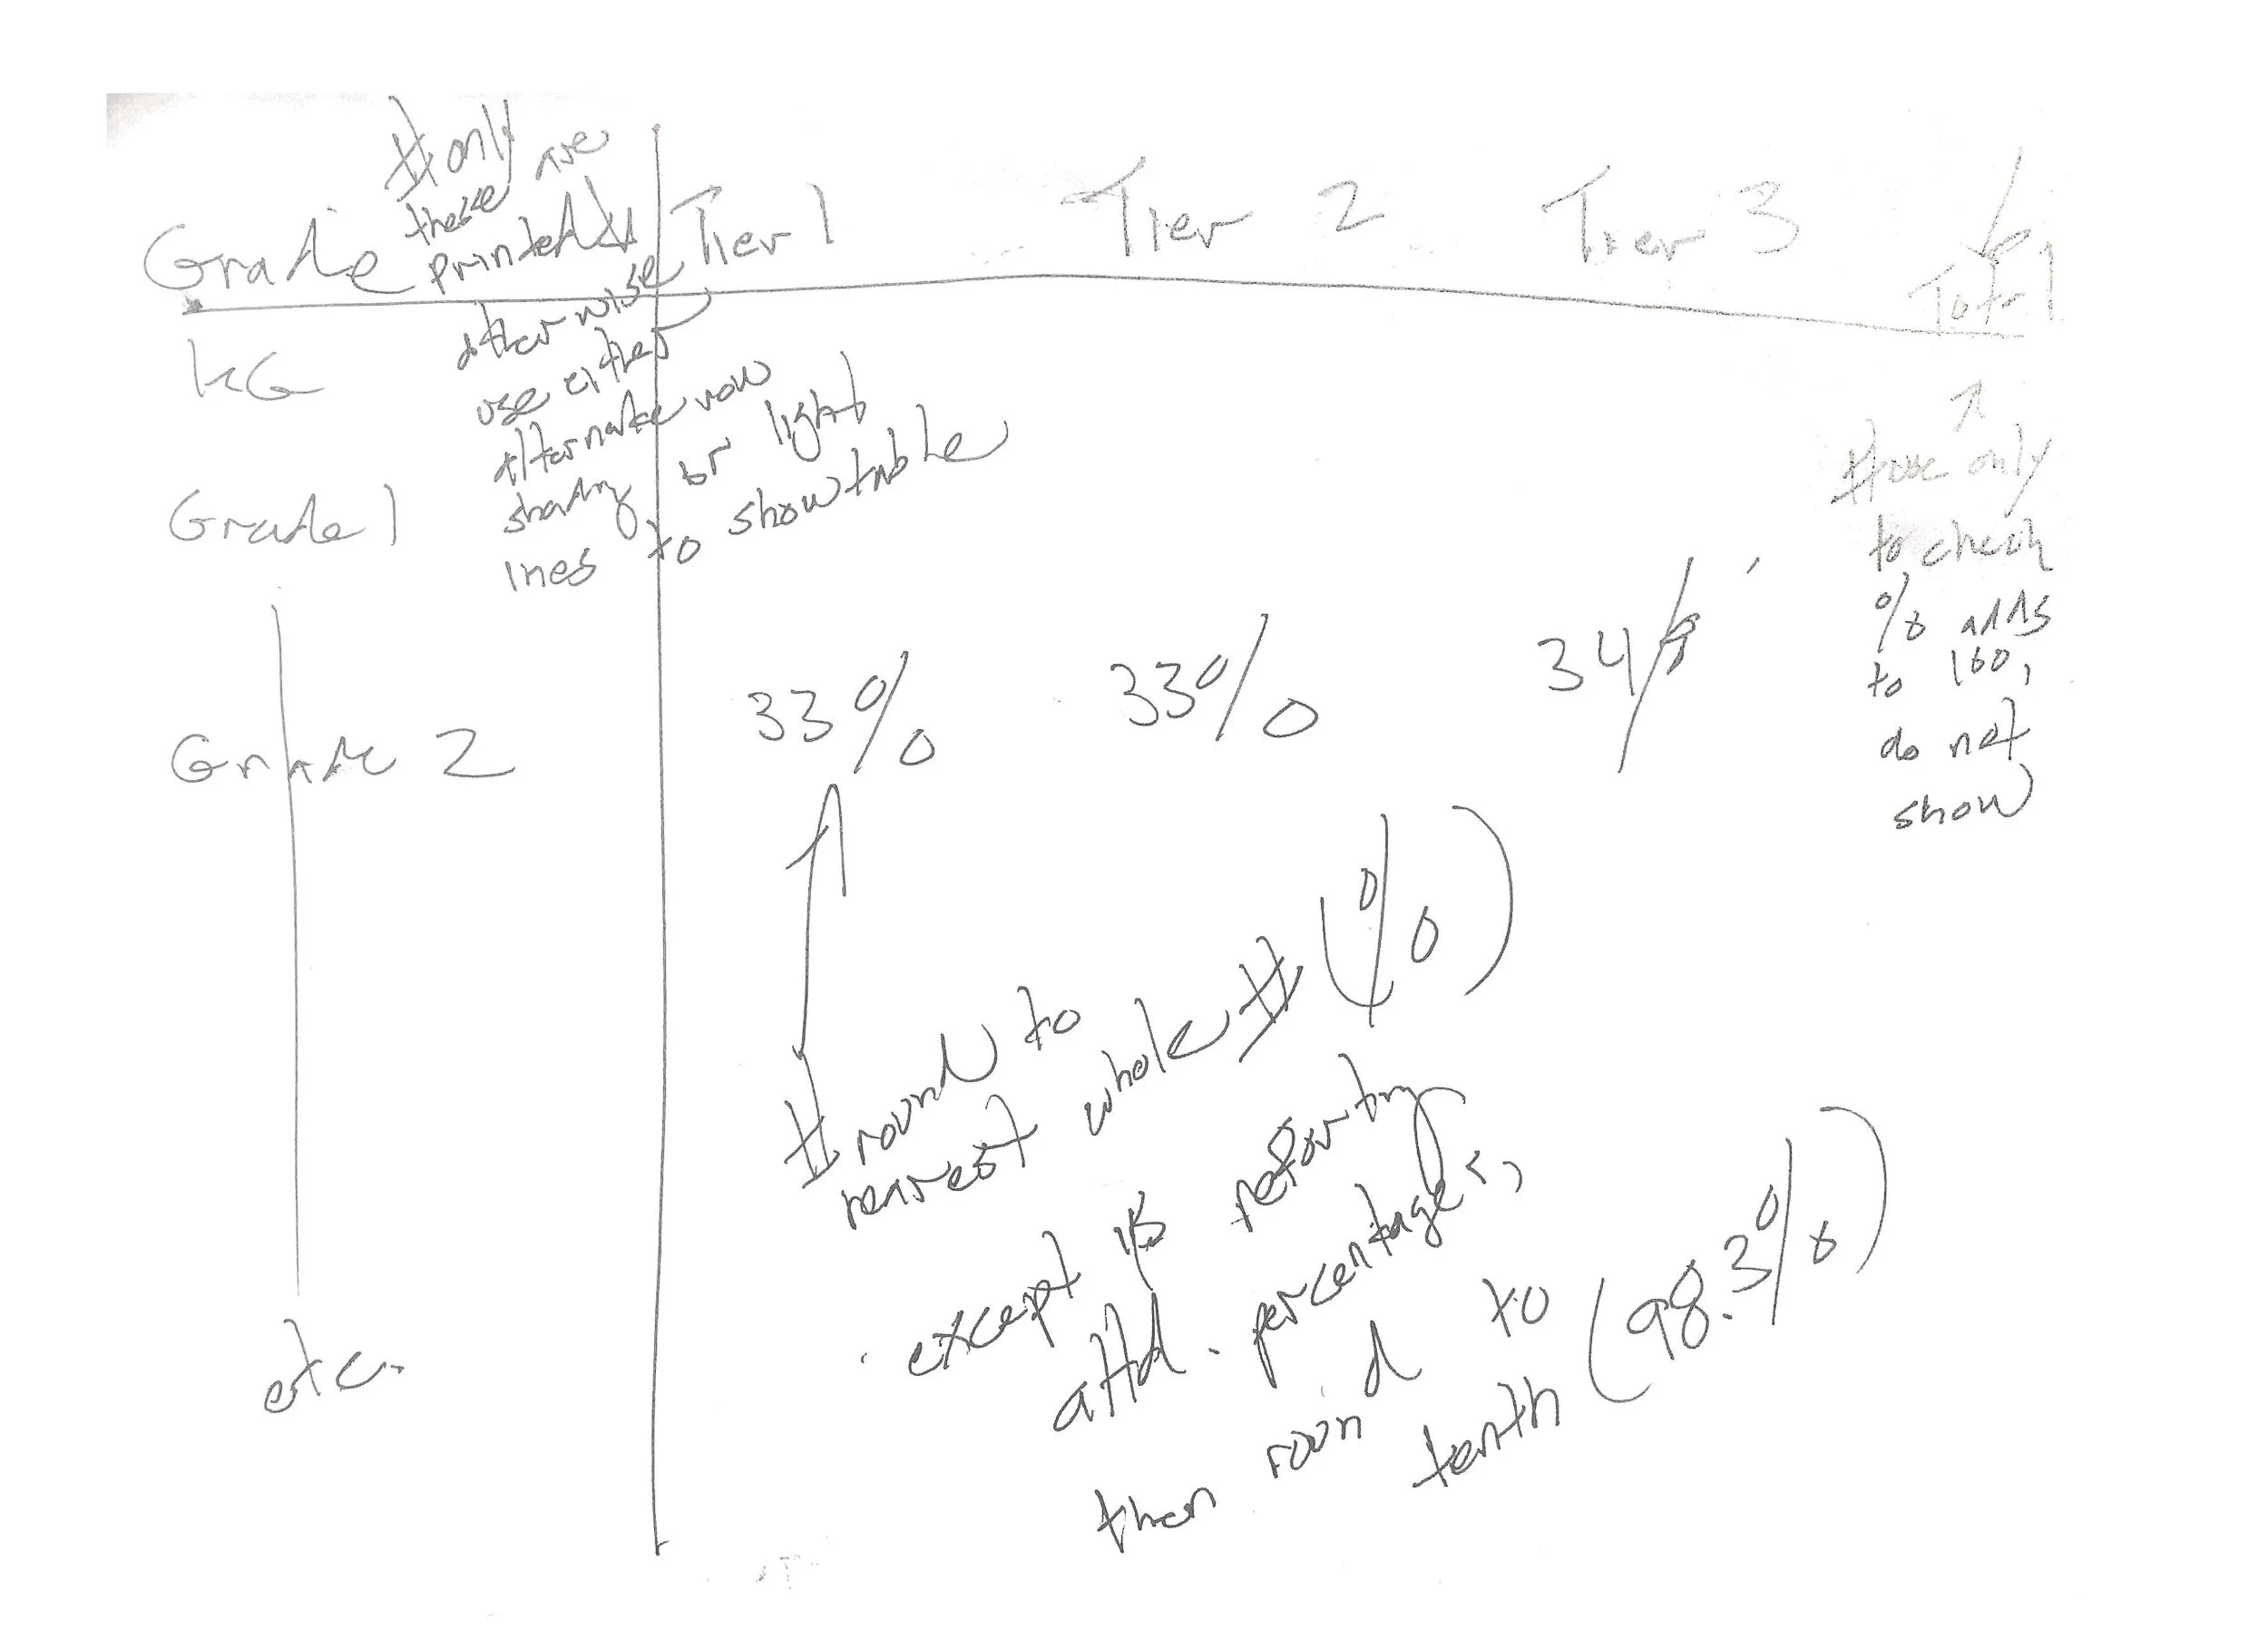 Grade
Tier 1
Tier 2
Tier 3
Total
# only
these are
printed
otherwise
use either
alternate row
shading or light
lines to show table
KG
Grade 1
Grade 2
33%
33%
34%
etc.
# use only
to check
% adds
to 100,
do not
show
# round to
nearest whole # (%)
except if reporting
attd. percentages,
then round to
tenth (98.3%)